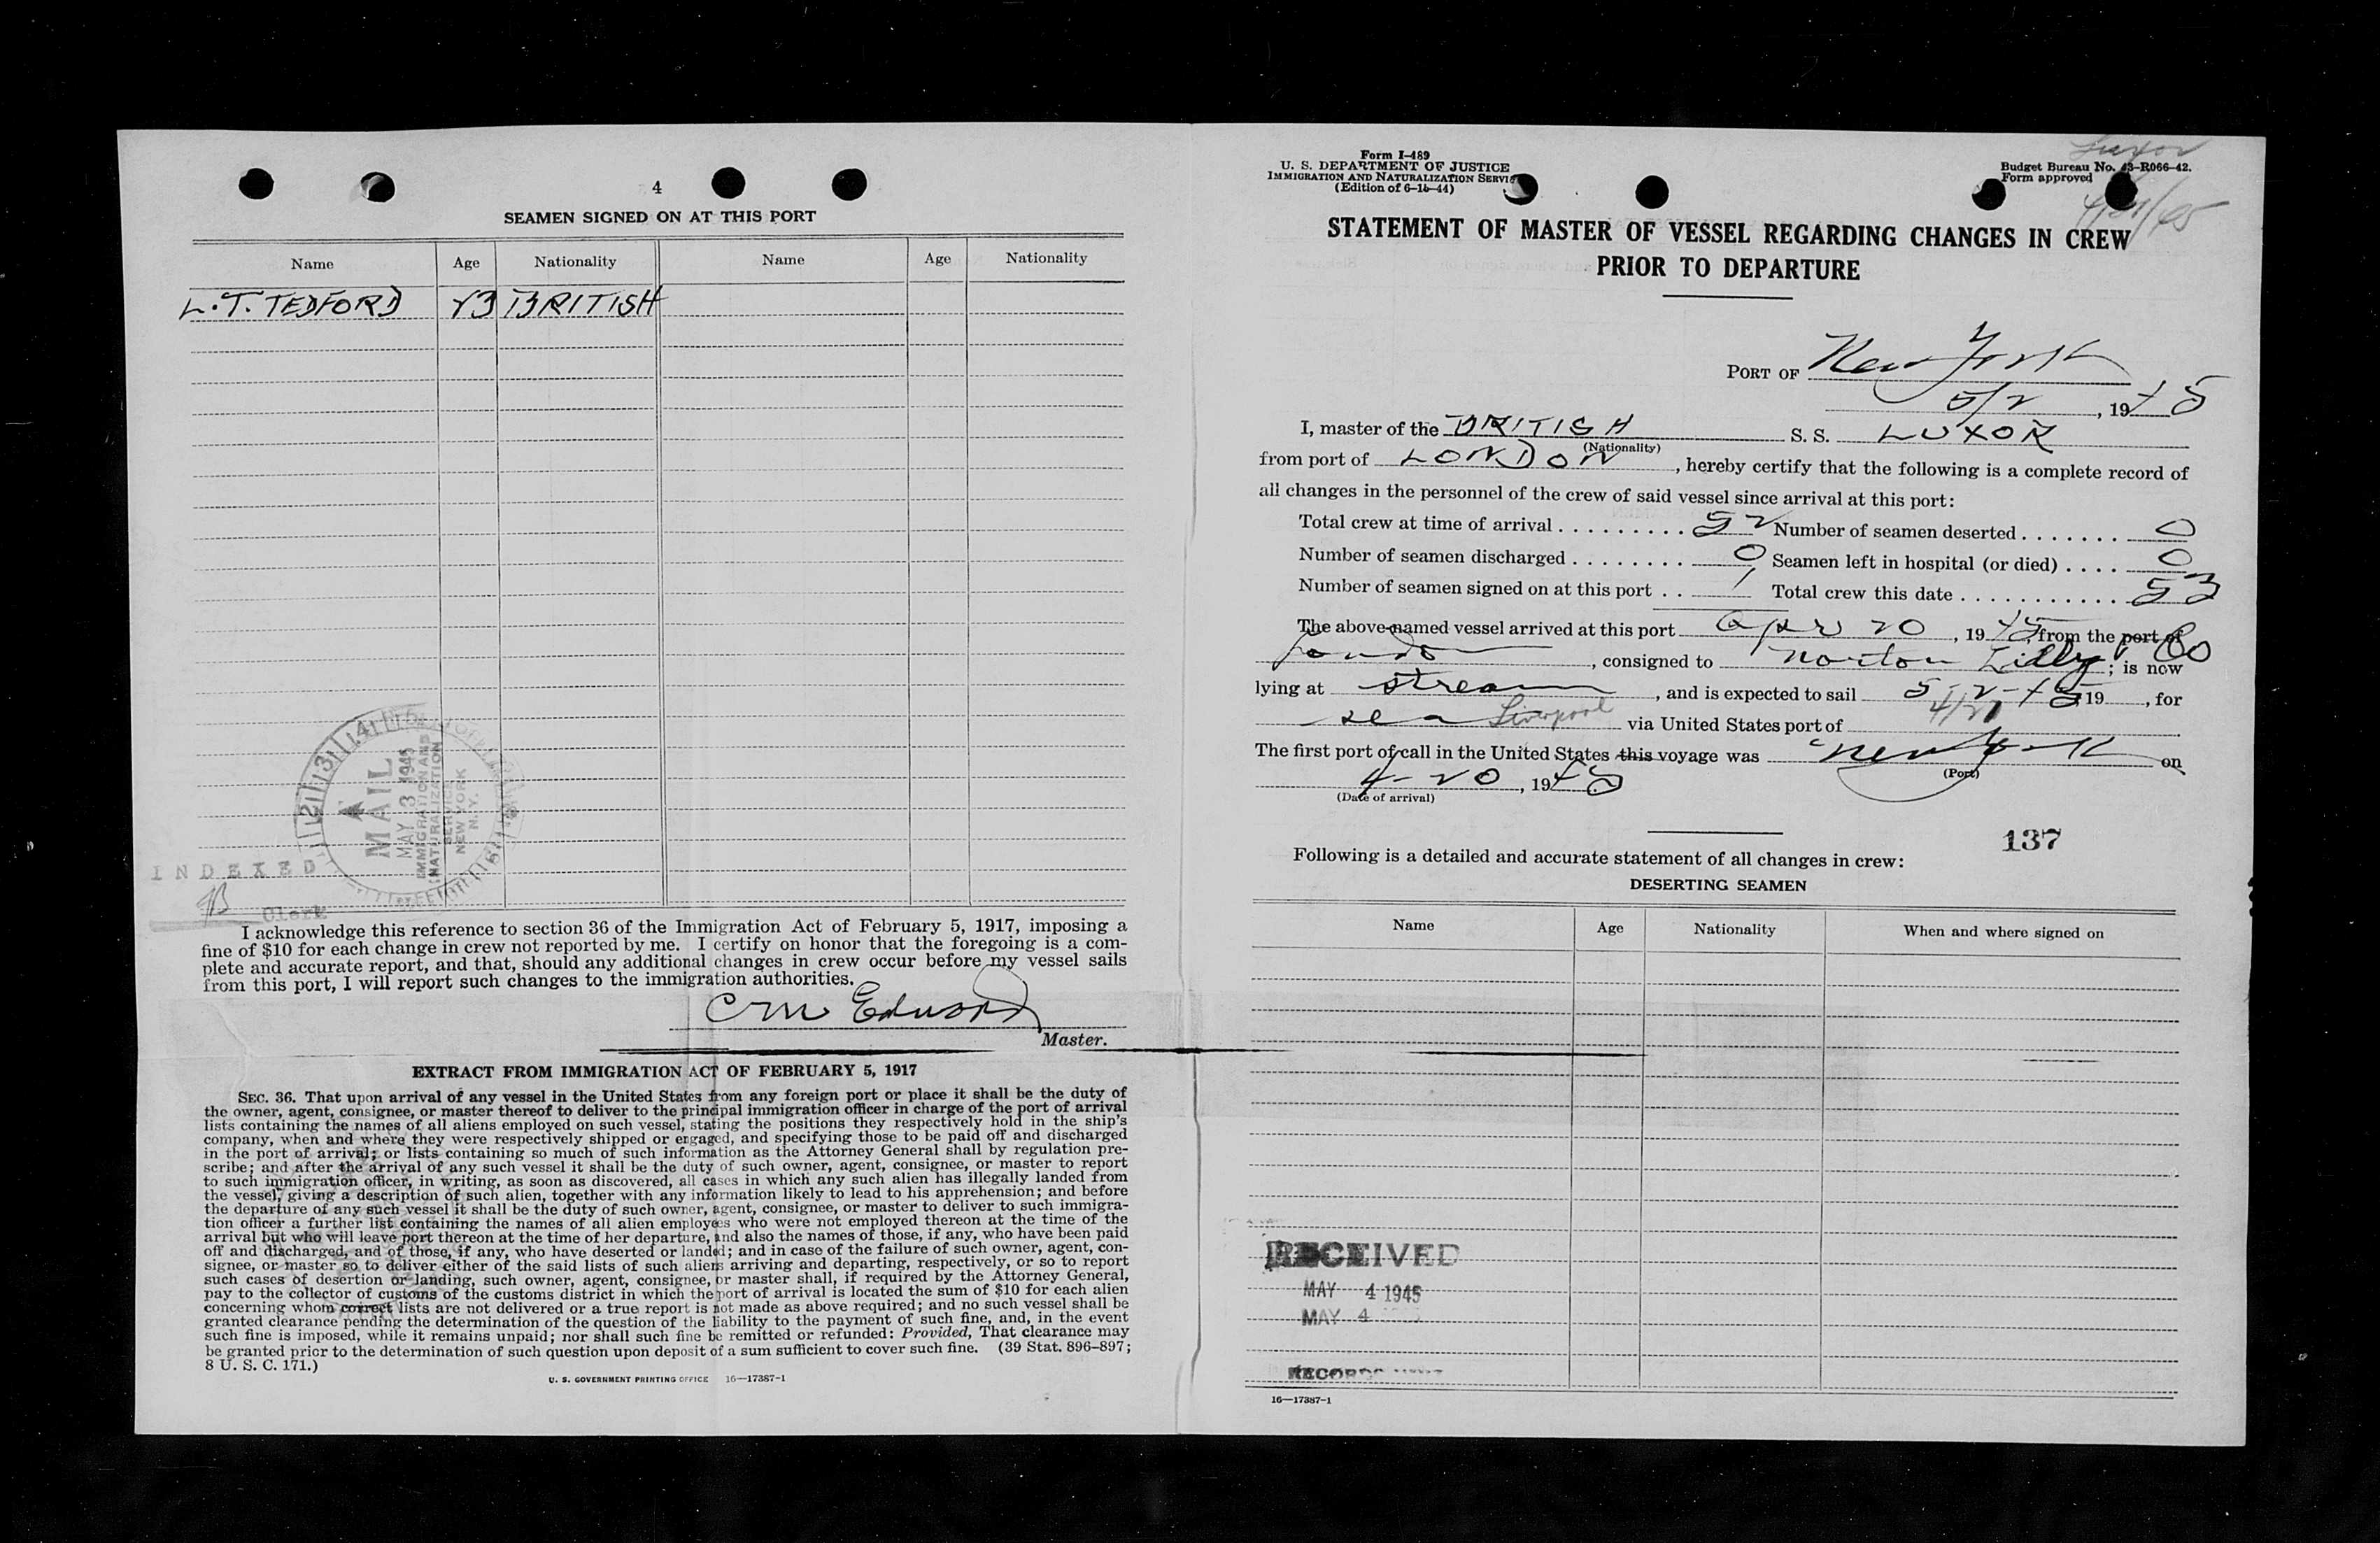 4
SEAMEN SIGNED ON AT THIS PORT
Name Age Nationality Name Age Nationality
L.T. TEDFORD 23 BRITISH
MAIL
MAY 3 1945
IMMIGRATION AND
NATURALIZATION
SERVICE
NEW YORK
N.Y.
INDEXED
Clerk
I acknowledge this reference to section 36 of the Immigration Act of February 5, 1917, imposing a
fine of $10 for each change in crew not reported by me. I certify on honor that the foregoing is a com-
plete and accurate report, and that, should any additional changes in crew occur before my vessel sails
from this port, I will report such changes to the immigration authorities.
CM Edwards
Master.
EXTRACT FROM IMMIGRATION ACT OF FEBRUARY 5, 1917
SEC. 36. That upon arrival of any vessel in the United States from any foreign port or place it shall be the duty of
the owner, agent, consignee, or master thereof to deliver to the principal immigration officer in charge of the port of arrival
lists containing the names of all aliens employed on such vessel, stating the positions they respectively hold in the ship's
company, when and where they were respectively shipped or engaged, and specifying those to be paid off and discharged
in the port of arrival; or lists containing so much of such information as the Attorney General shall by regulation pre-
scribe; and after the arrival of any such vessel it shall be the duty of such owner, agent, consignee, or master to report
to such immigration officer, in writing, as soon as discovered, all cases in which any such alien has illegally landed from
the vessel, giving a description of such alien, together with any information likely to lead to his apprehension; and before
the departure of any such vessel it shall be the duty of such owner, agent, consignee, or master to deliver to such immigra-
tion officer a further list containing the names of all alien employees who were not employed thereon at the time of the
arrival but who will leave port thereon at the time of her departure, and also the names of those, if any, who have been paid
off and discharged, and of those, if any, who have deserted or landed; and in case of the failure of such owner, agent, con-
signee, or master so to deliver either of the said lists of such aliens arriving and departing, respectively, or so to report
such cases of desertion or landing, such owner, agent, consignee, or master shall, if required by the Attorney General,
pay to the collector of customs of the customs district in which the port of arrival is located the sum of $10 for each alien
concerning whom correct lists are not delivered or a true report is not made as above required; and no such vessel shall be
granted clearance pending the determination of the question of the liability to the payment of such fine, and, in the event
such fine is imposed, while it remains unpaid; nor shall such fine be remitted or refunded: Provided, That clearance may
be granted prior to the determination of such question upon deposit of a sum sufficient to cover such fine. (39 Stat. 896-897;
8 U. S. C. 171.)
U. S. GOVERNMENT PRINTING OFFICE 16—17387-1
Form I-489
U. S. DEPARTMENT OF JUSTICE
IMMIGRATION AND NATURALIZATION SERVICE
(Edition of 6-15-44)
Luxor
Budget Bureau No. 43-R066-42.
Form approved
STATEMENT OF MASTER OF VESSEL REGARDING CHANGES IN CREW
PRIOR TO DEPARTURE
PORT OF New York
5/2, 1945
I, master of the BRITISH S. S. LUXOR
(Nationality)
from port of LONDON, hereby certify that the following is a complete record of
all changes in the personnel of the crew of said vessel since arrival at this port:
Total crew at time of arrival 52 Number of seamen deserted 0
Number of seamen discharged 0 Seamen left in hospital (or died) 0
Number of seamen signed on at this port 1 Total crew this date 53
The above-named vessel arrived at this port Apr 20, 1945, from the port of
London, consigned to Norton Lilly Co; is now
lying at stream, and is expected to sail 5-2-45 19, for
sea Liverpool via United States port of
The first port of call in the United States this voyage was New York on
(Port)
4-20, 1945
(Date of arrival)
137
Following is a detailed and accurate statement of all changes in crew:
DESERTING SEAMEN
Name Age Nationality When and where signed on
RECEIVED
MAY 4 1945
MAY 4
RECORDS
16—17387-1